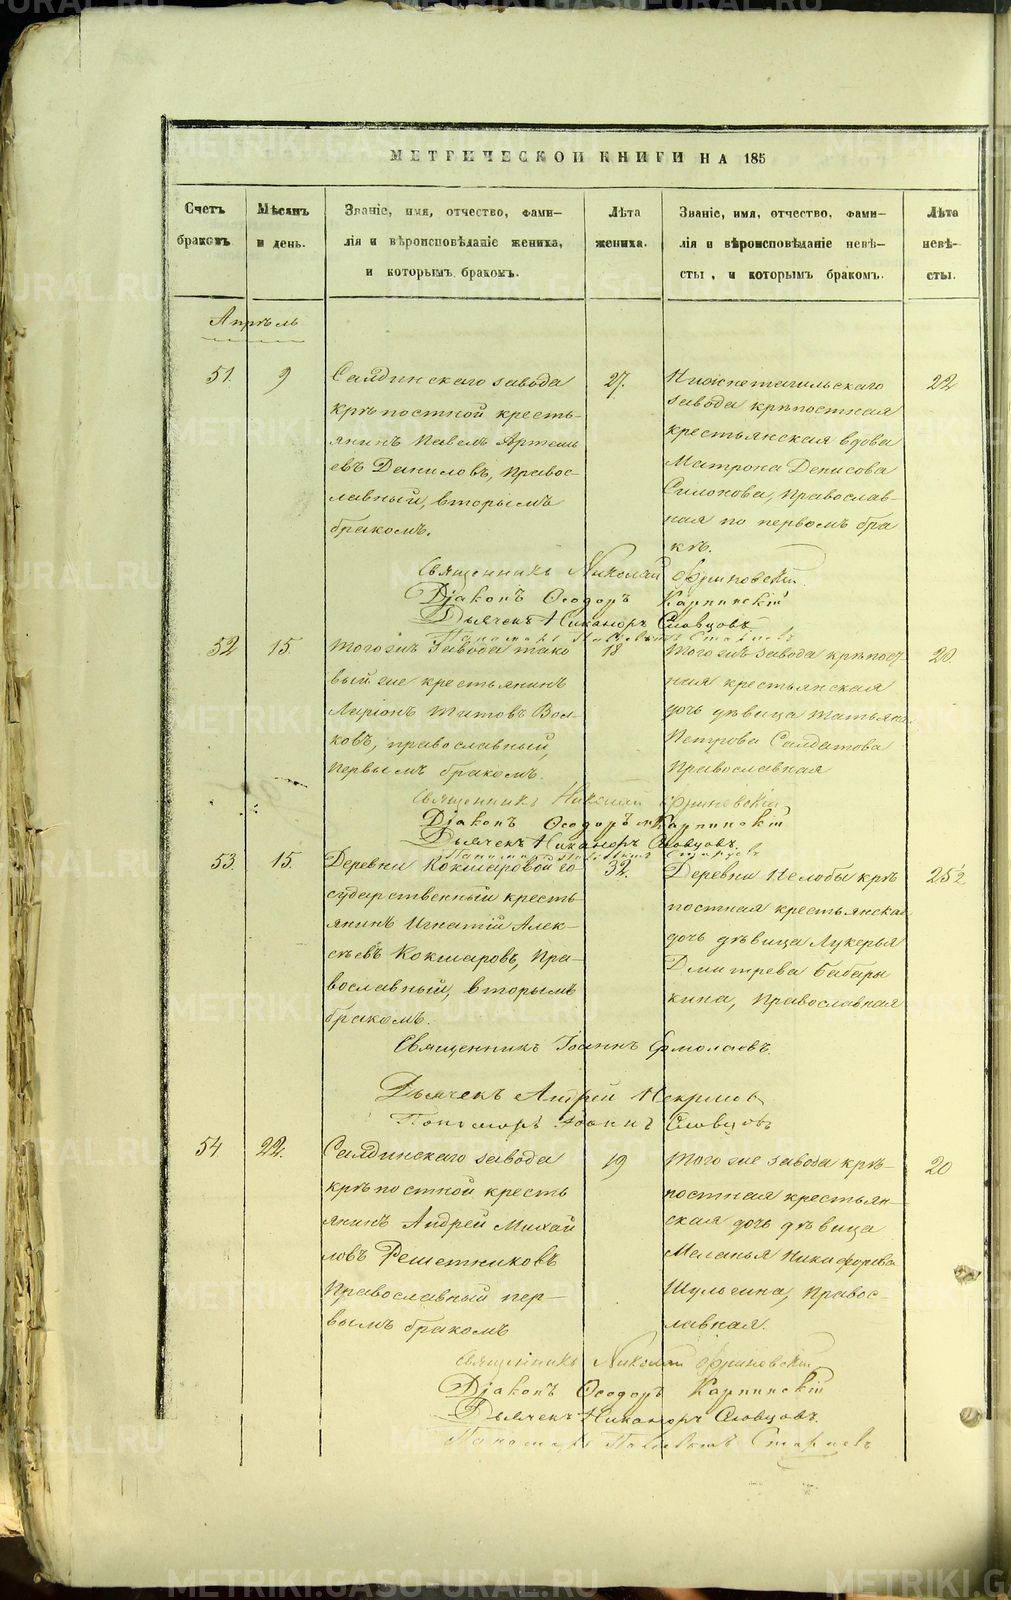 МЕТРИЧЕСКОЙ КНИГИ НА 185
Счетъ браковъ.
Мѣсяцъ и день.
Званіе, имя, отчество, фами-
лія и вѣроисповѣданіе жениха,
и которымъ бракомъ.
Лѣта жениха.
Званіе, имя, отчество, фами-
лія и вѣроисповѣданіе невѣ-
сты, и которымъ бракомъ.
Лѣта невѣ-
сты.
Апрѣль
51.
9
Салдинскаго завода
крѣпостной кресть-
янинъ Павелъ Артемь
евъ Даниловъ, Правос-
лавный, вторымъ
бракомъ.
27.
Нижнетагильскаго
завода крѣпостная
крестьянская вдова
Матрона Денисова
Силонова, Православ-
ная по первомъ бра
кѣ.
22
Священникъ Николай Фриновскій.
Діаконъ Ѳеодоръ Карпинскій
Дьячекъ Никаноръ Словцовъ
52
15.
Того же завода тако
вый же крестьянинъ
Ларіонъ Титовъ Вол-
ковъ, православный,
Первымъ бракомъ.
18
Того же завода крѣпост-
ная крестьянская
дочь дѣвица Татьяна
Петрова Салдатова
Православная
20.
Священникъ Николай Фриновскій
Діаконъ Ѳеодоръ Карпинскій
Дьячекъ Никаноръ Словцовъ.
53.
15.
Деревни Кокшаровой го-
сударственный кресть
янинъ Игнатій Алек-
сѣевъ Кокшаровъ, Пра-
вославный, вторымъ
бракомъ.
32.
Деревни Нелобы крѣ
постная крестьянская
дочь дѣвица Лукерья
Дмитрева Бабары
кина, Православная
25½
Священникъ Іоаннъ Ермолаевъ.
Дьячекъ Андрей
Пономарь Іоаннъ Словцовъ
54
22.
Салдинскаго завода
крѣпостной кресть
янинъ Андрей Михай
ловъ Решетниковъ
Православный пер-
вымъ бракомъ
19
Того же завода крѣ-
постная крестьян-
ская дочь дѣвица
Меланья Никифорова
Шульгина, Правос-
лавная.
20
Священникъ Николай Фриновскій
Діаконъ Ѳеодоръ Карпинскій
Дьячекъ Никаноръ Словцовъ.
METRIKI.GASO-URAL.RU